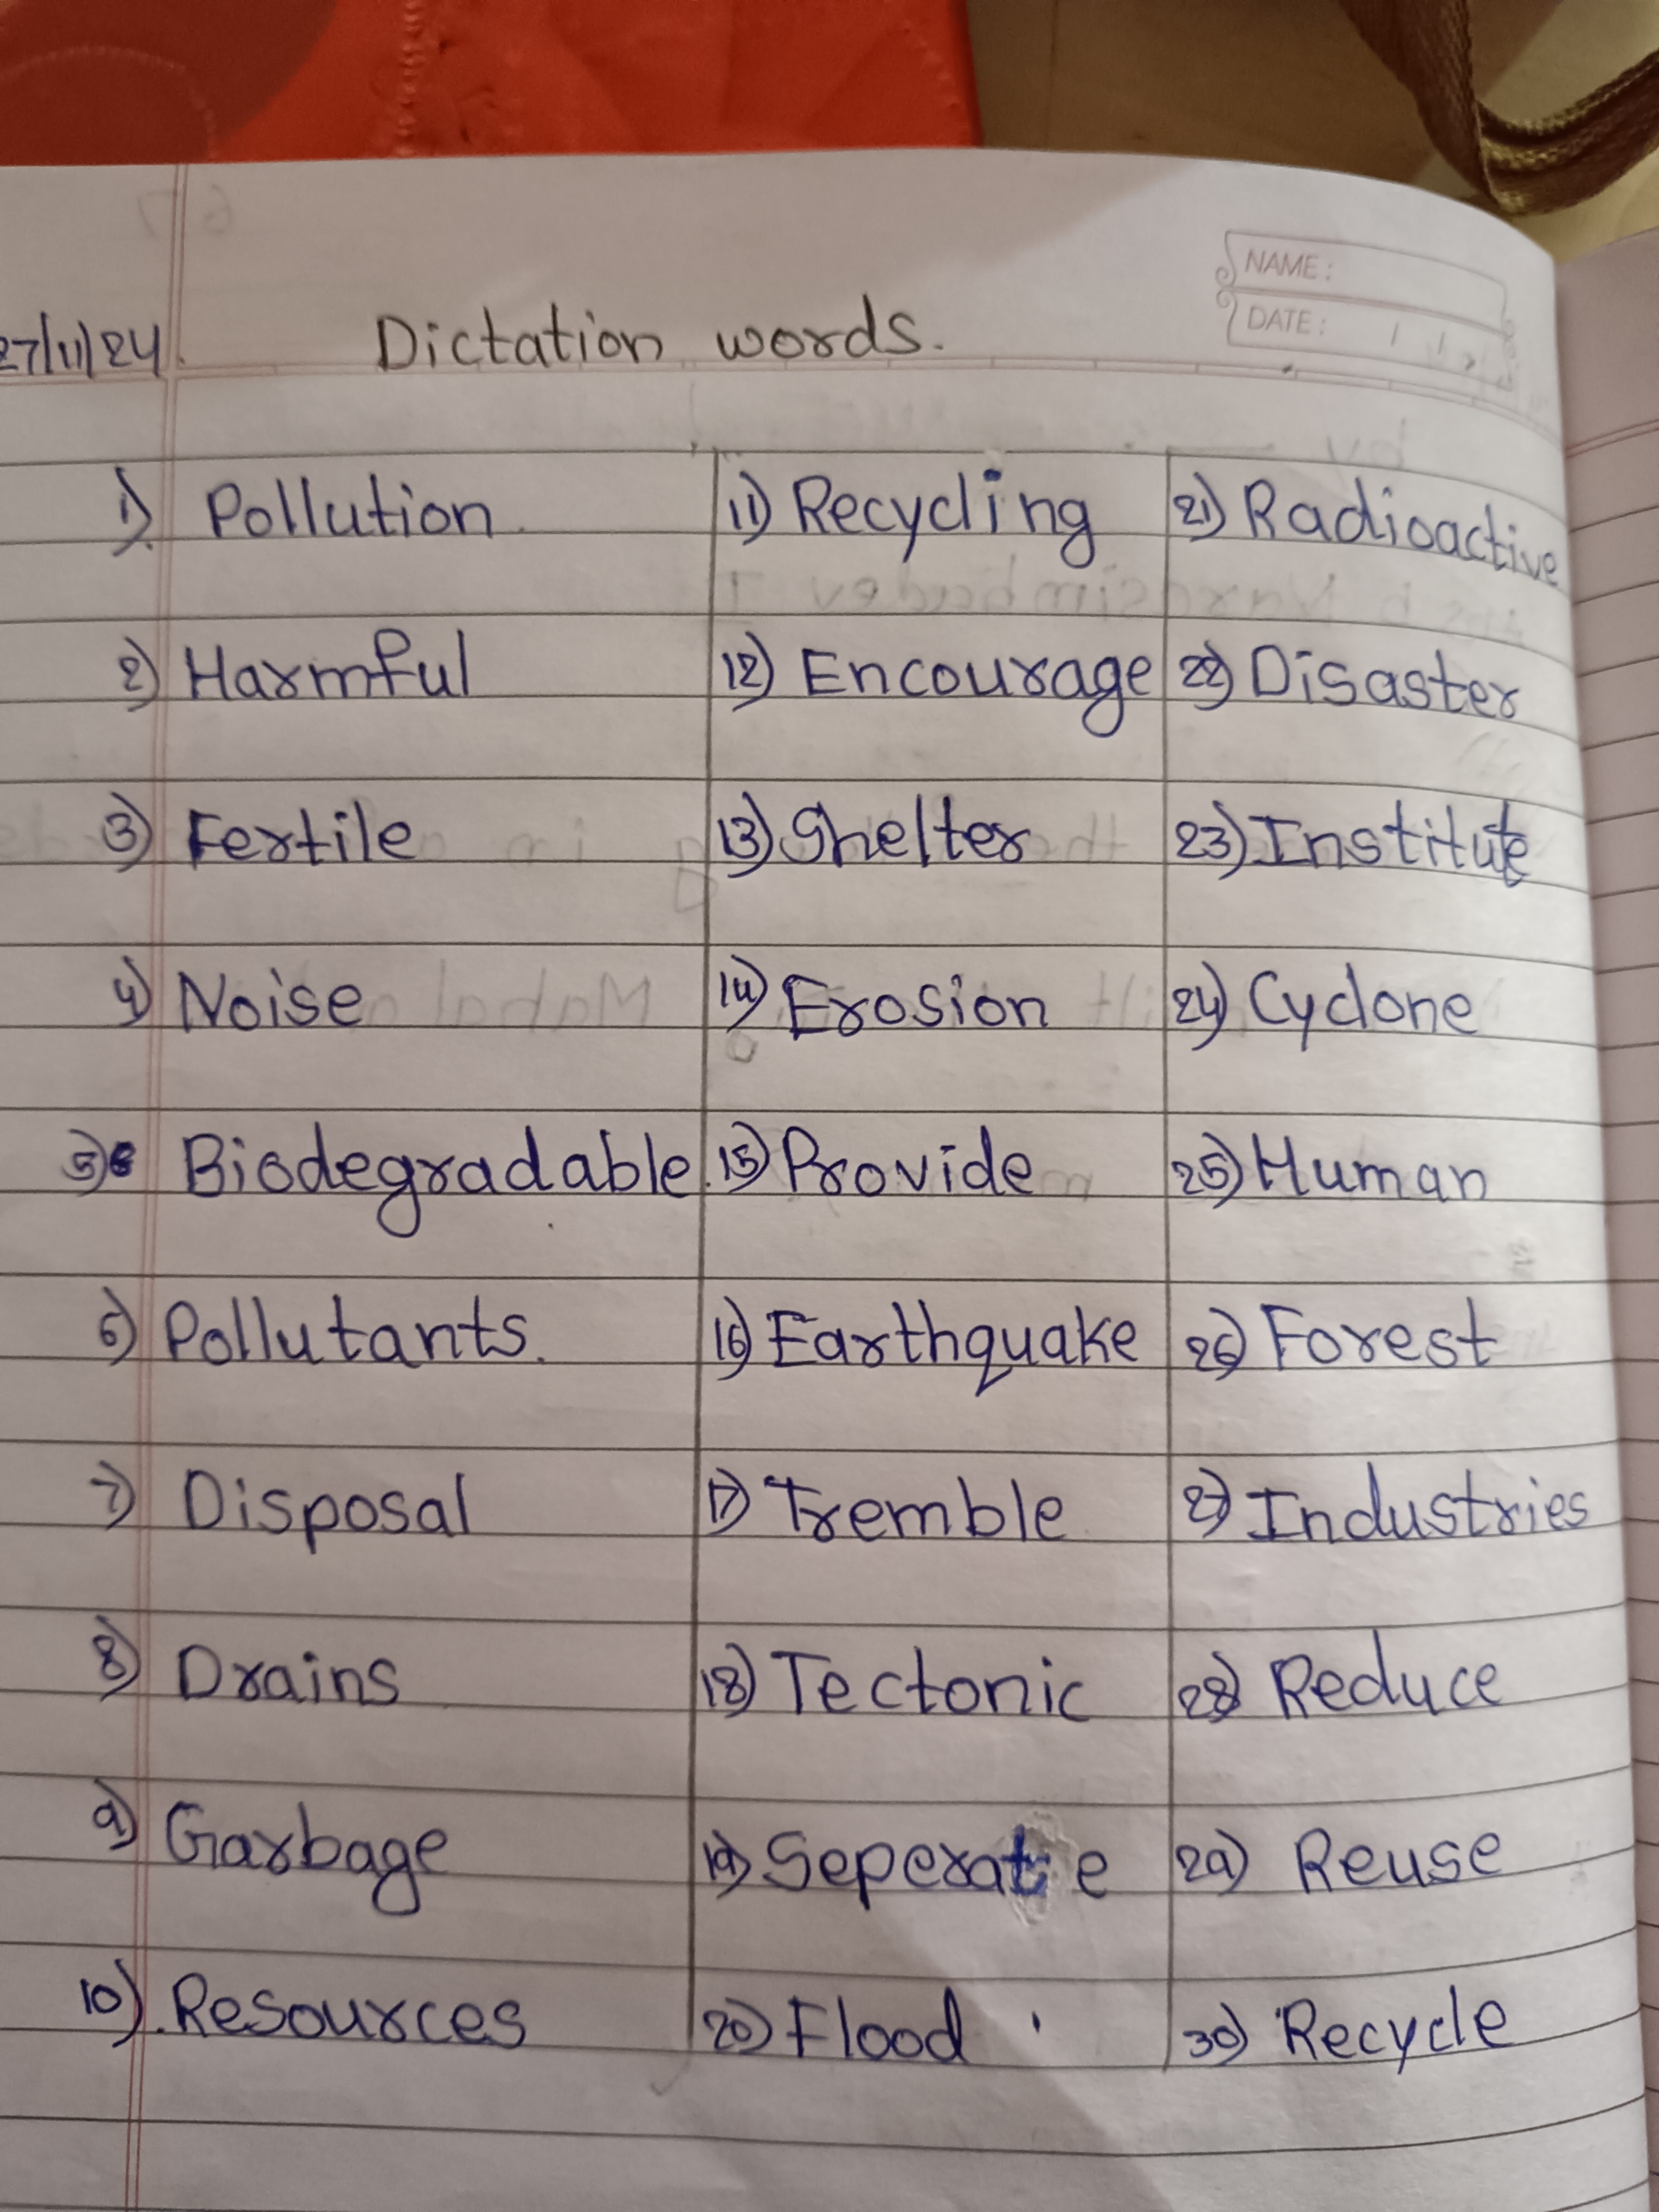 NAME:
DATE: / /
27/11/24. Dictation words.
1) Pollution 11) Recycling 21) Radioactive
2) Harmful 12) Encourage 22) Disaster
3) Fertile 13) Shelter 23) Institute
4) Noise 14) Erosion 24) Cyclone
5) Biodegradable. 15) Provide 25) Human
6) Pollutants. 16) Earthquake 26) Forest
7) Disposal 17) Tremble 27) Industries
8) Drains 18) Tectonic 28) Reduce
9) Garbage 19) Seperate 29) Reuse
10). Resources 20) Flood 30) Recycle